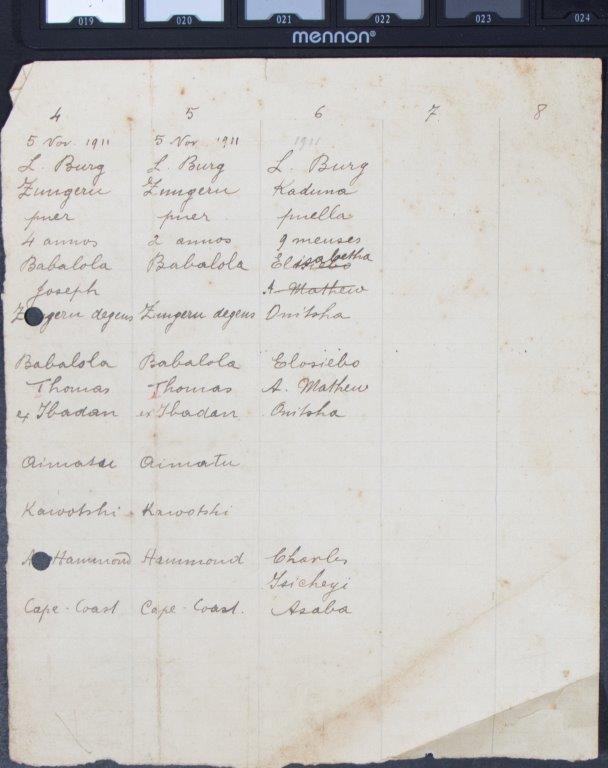 019 020 021 022 023 024
mennon®
4 5 6 7. 8
5 Nov. 1911 5 Nov 1911 1911
L. Burg L. Burg L. Burg
Zungeru Zungeru Kaduna
puer puer puella
4 annos 2 annos 9 menses
Babalola Babalola Elisabetha
Joseph A. Mathew
Zungeru degens Zungeru degens Onitsha
Babalola Babalola Elosiebo
Thomas Thomas A. Mathew
ex Ibadan ex Ibadan Onitsha
Aimatu Aimatu
Kawotshi Kawotshi
Hammond Hammond Charles
Isicheyi
Cape-Coast Cape-Coast. Asaba